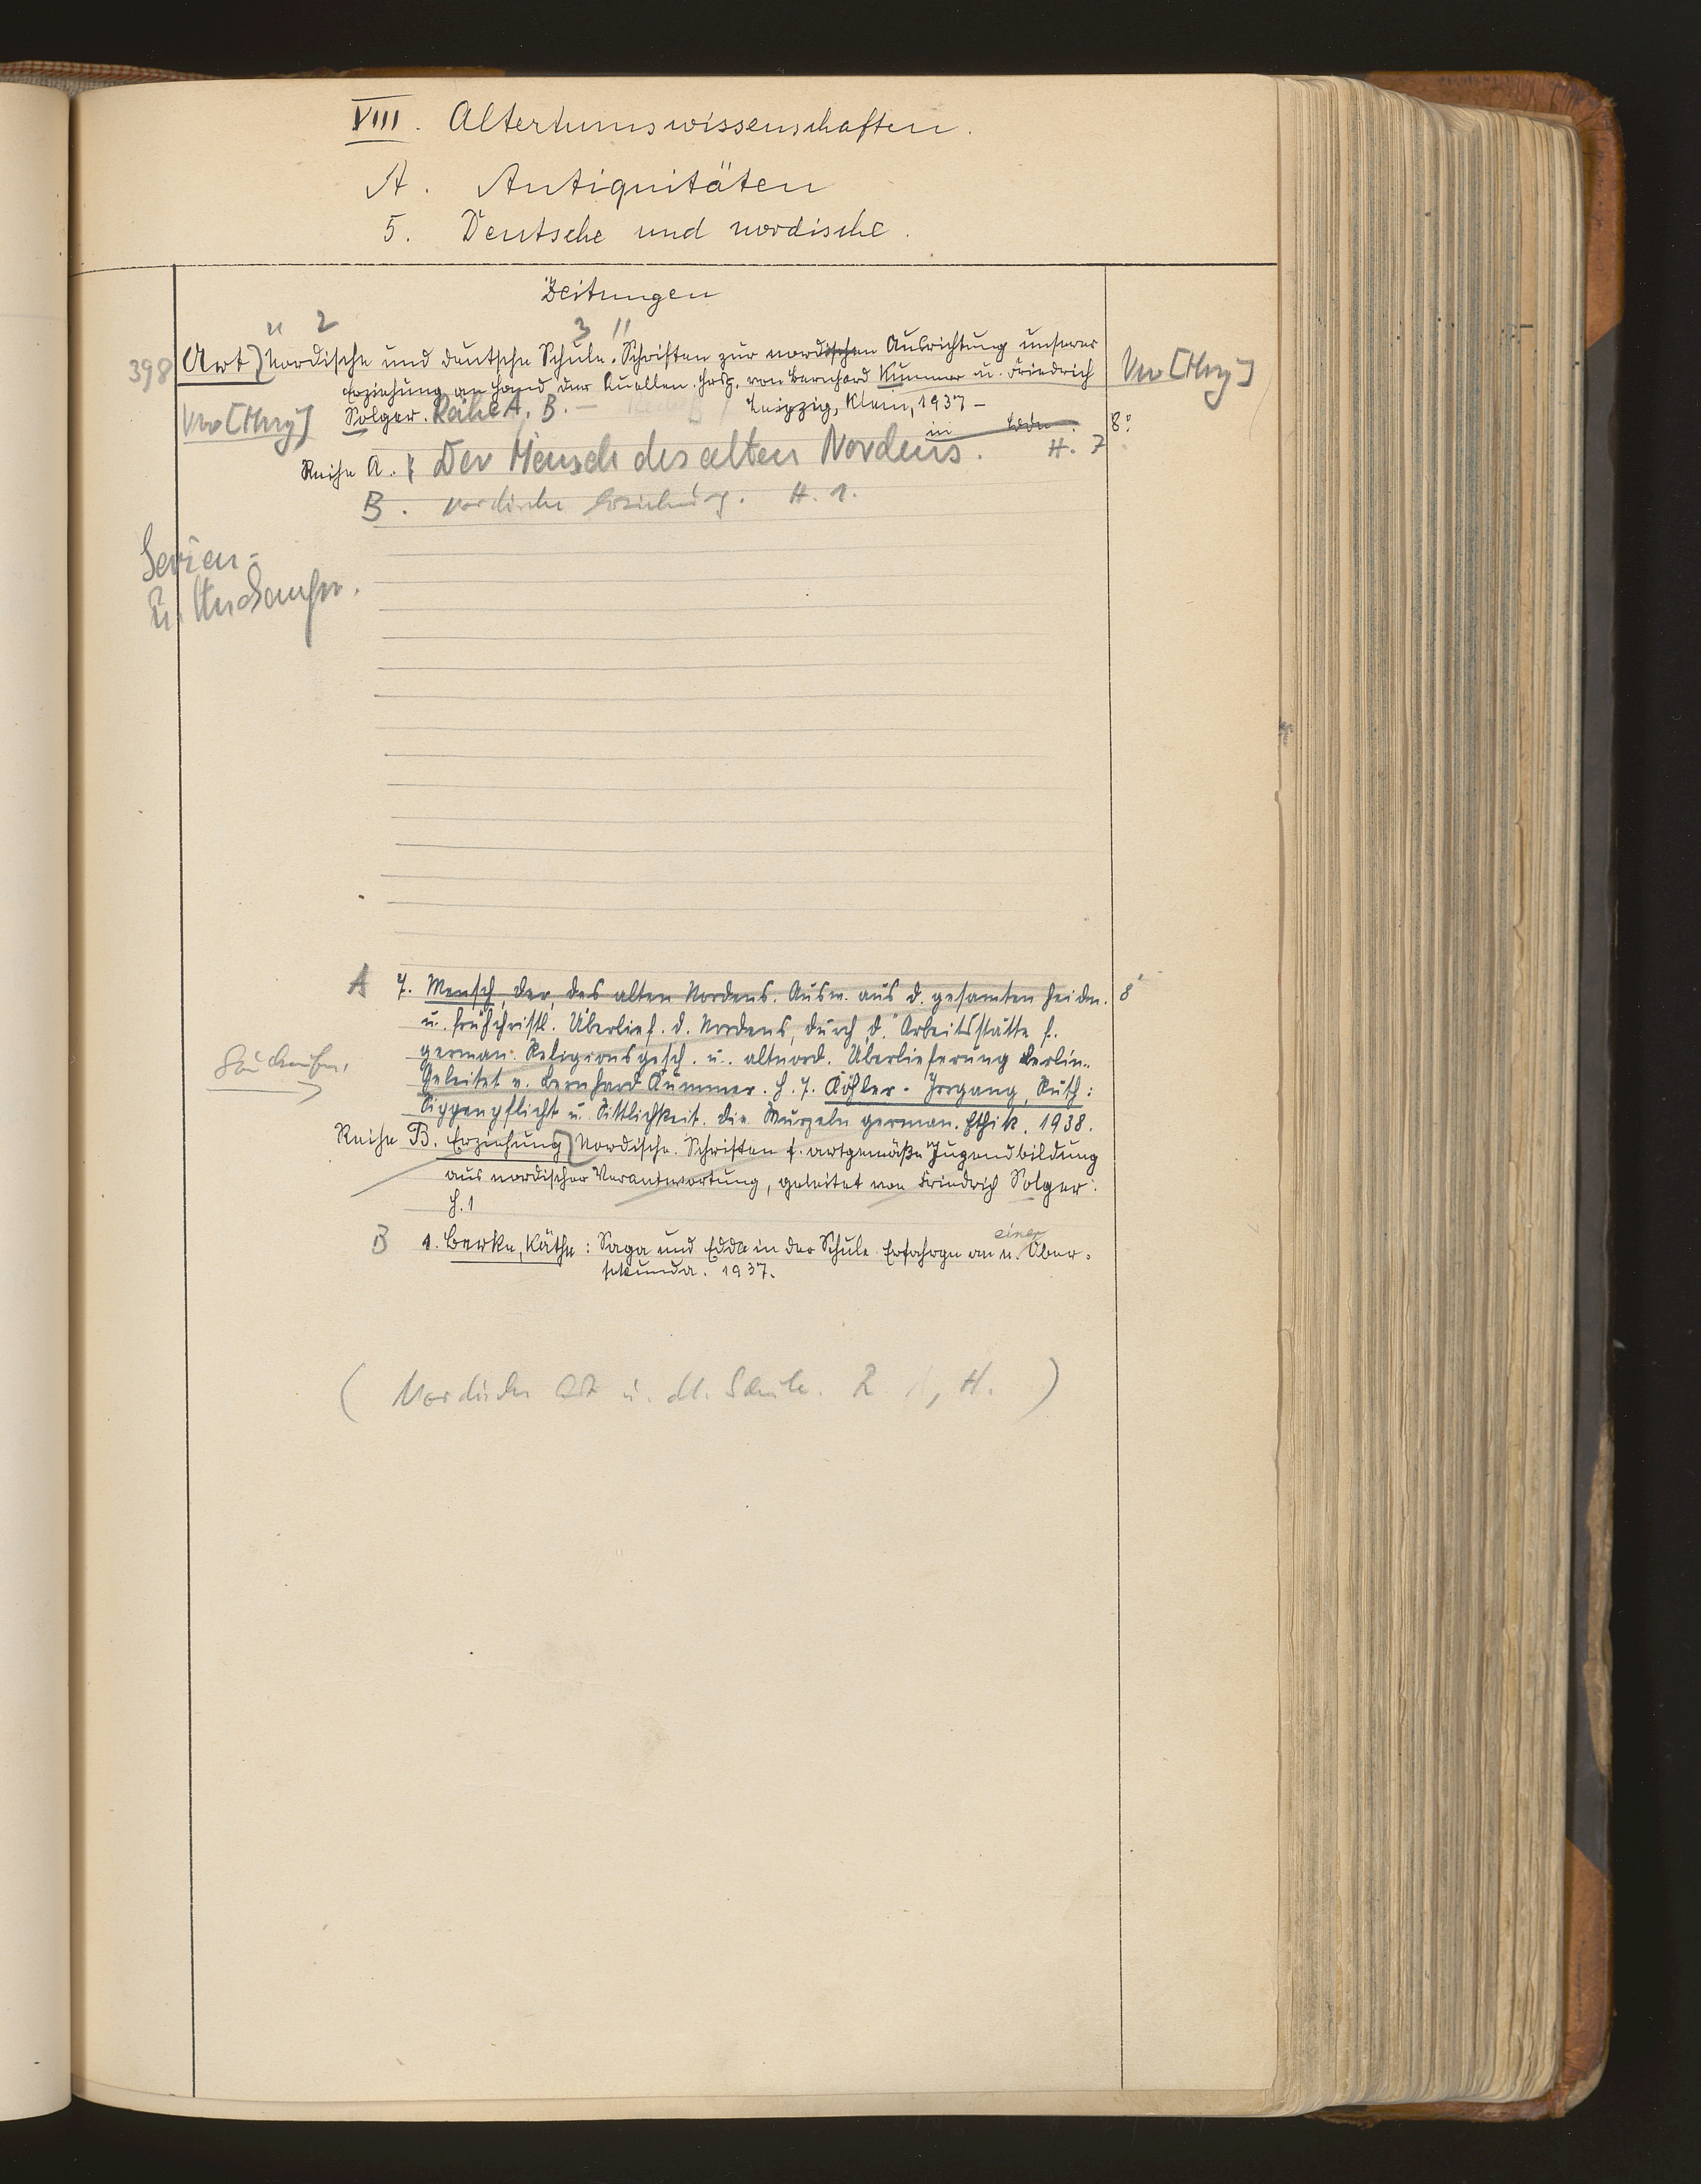 VIII. Altertumswissenschaften.
A. Antiquitäten
5. Deutsche und nordische.
Zeitungen
" 2 3 "
398 Art) Nordische und deutsche Schule. Schriften zur nordischen Ausrichtung unserer
Erziehung an Hand der Quellen. Hrsg. von Bernhard Kummer u. Friedrich
Solger. Reihe A, B. – Leipzig, Klein, 1937 –
in 8°
Reihe A. Der Mensch des alten Nordens. H. 7
B. Nordische Erziehung. H. 1.
Serien =
A 7. Mensch, der, des alten Nordens. Ausw. aus d. gesamten heidn. 8°
u. frühchristl. Überlief. d. Nordens, durch d. Arbeitsstätte f.
german. Religionsgesch. u. altnord. Überlieferung Berlin..
Geleitet v. Bernhard Kummer. H. 7. Köhler-Irrgang, Ruth:
Sippenpflicht u. Sittlichkeit. Die Wurzeln german. Ethik. 1938.
Reihe B. Erziehung) Nordische. Schriften f. artgemäße Jugendbildung
aus nordischer Verantwortung, geleitet von Friedrich Solger.
H. 1
einer
B 1. Berke, Käthe: Saga und Edda in der Schule. Erfahrgn an u. Ober-
sekunda. 1937.
( Nordische Art u. dt. Schule. R. A, H. )